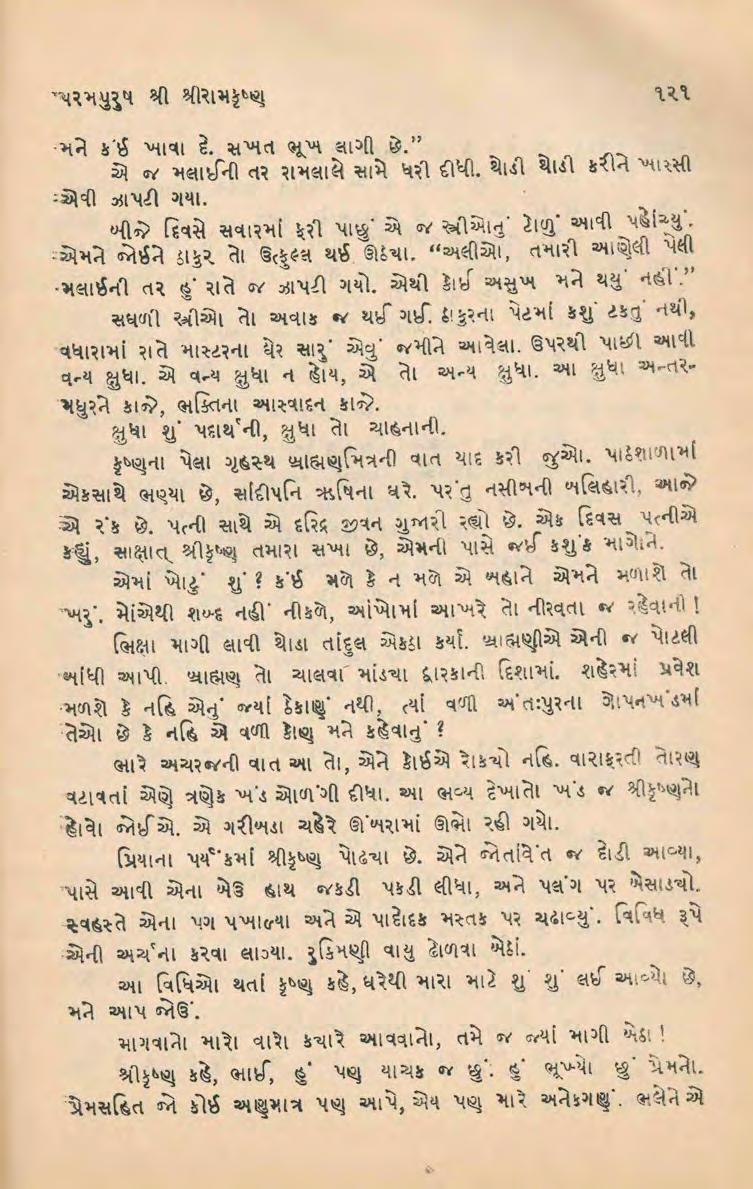 પરમપુરુષ શ્રી શ્રીરામકૃષ્ણ ૧૨૧
મને કંઈ ખાવા દે. સખત ભૂખ લાગી છે.”
એ જ મલાઈની તર રામલાલે સામે ધરી દીધી. થોડી થોડી કરીને ખાસ્સી
એવી ઝાપટી ગયા.
બીજે દિવસે સવારમાં ફરી પાછું એ જ સ્ત્રીઓનું ટોળું આવી પહોંચ્યું.
એમને જોઈને ઠાકુર તો ઉત્ફુલ્લ થઈ ઊઠ્યા. “અલીઓ, તમારી આણેલી પેલી
મલાઈની તર હું રાતે જ ઝાપટી ગયો. એથી કોઈ અસુખ મને થયું નહીં.”
સઘળી સ્ત્રીઓ તો અવાક જ થઈ ગઈ. ઠાકુરના પેટમાં કશું ટકતું નથી,
વધારામાં રાતે માસ્ટરના ઘેર સારું એવું જમીને આવેલા. ઉપરથી પાછી આવી
વન્ય ક્ષુધા. એ વન્ય ક્ષુધા ન હોય, એ તો અન્ય ક્ષુધા. આ ક્ષુધા અન્તર-
મધુરને કાજે, ભક્તિના આસ્વાદન કાજે.
ક્ષુધા શું પદાર્થની, ક્ષુધા તો ચાહનાની.
કૃષ્ણના પેલા ગૃહસ્થ બ્રાહ્મણમિત્રની વાત યાદ કરી જુઓ. પાઠશાળામાં
એકસાથે ભણ્યા છે, સાંદીપનિ ઋષિના ઘરે. પરંતુ નસીબની બલિહારી, આજે
એ રંક છે. પત્ની સાથે એ દરિદ્ર જીવન ગુજારી રહ્યો છે. એક દિવસ પત્નીએ
કહ્યું, સાક્ષાત્ શ્રીકૃષ્ણ તમારા સખા છે, એમની પાસે જઈ કશુંક માગોને.
એમાં ખોટું શું ? કંઈ મળે કે ન મળે એ બહાને એમને મળાશે તો
ખરું. મોંએથી શબ્દ નહીં નીકળે, આંખોમાં આખરે તો નીરવતા જ રહેવાની !
ભિક્ષા માગી લાવી થોડા તાંદુલ એકઠા કર્યા. બ્રાહ્મણીએ એની જ પોટલી
બાંધી આપી. બ્રાહ્મણ તો ચાલવા માંડ્યા દ્વારકાની દિશામાં. શહેરમાં પ્રવેશ
મળશે કે નહિ એનું જ્યાં ઠેકાણું નથી, ત્યાં વળી અંતઃપુરના ગોપનખંડમાં
તેઓ છે કે નહિ એ વળી કોણ મને કહેવાનું ?
ભારે અચરજની વાત આ તો, એને કોઈએ રોક્યો નહિ. વારાફરતી તોરણ
વટાવતાં એણે ત્રણેક ખંડ ઓળંગી દીધા. આ ભવ્ય દેખાતો ખંડ જ શ્રીકૃષ્ણનો
હોવો જોઈએ. એ ગરીબડા ચહેરે ઊંબરામાં ઊભો રહી ગયો.
પ્રિયાના પર્યંકમાં શ્રીકૃષ્ણ પોઢ્યા છે. એને જોતાંવેંત જ દોડી આવ્યા,
પાસે આવી એના બેઉ હાથ જકડી પકડી લીધા, અને પલંગ પર બેસાડ્યો.
સ્વહસ્તે એના પગ પખાળ્યા અને એ પાદોદક મસ્તક પર ચઢાવ્યું. વિવિધ રૂપે
એની અર્ચના કરવા લાગ્યા. રુકિમણી વાયુ ઢોળવા બેઠાં.
આ વિધિઓ થતાં કૃષ્ણ કહે, ઘરેથી મારા માટે શું શું લઈ આવ્યો છે,
મને આપ જોઉં.
માગવાનો મારો વારો ક્યારે આવવાનો, તમે જ જ્યાં માગી બેઠા !
શ્રીકૃષ્ણ કહે, ભાઈ, હું પણ યાચક જ છું. હું ભૂખ્યો છું પ્રેમનો.
પ્રેમસહિત જો કોઈ અણુમાત્ર પણ આપે, એય પણ મારે અનેકગણું. ભલેને એ